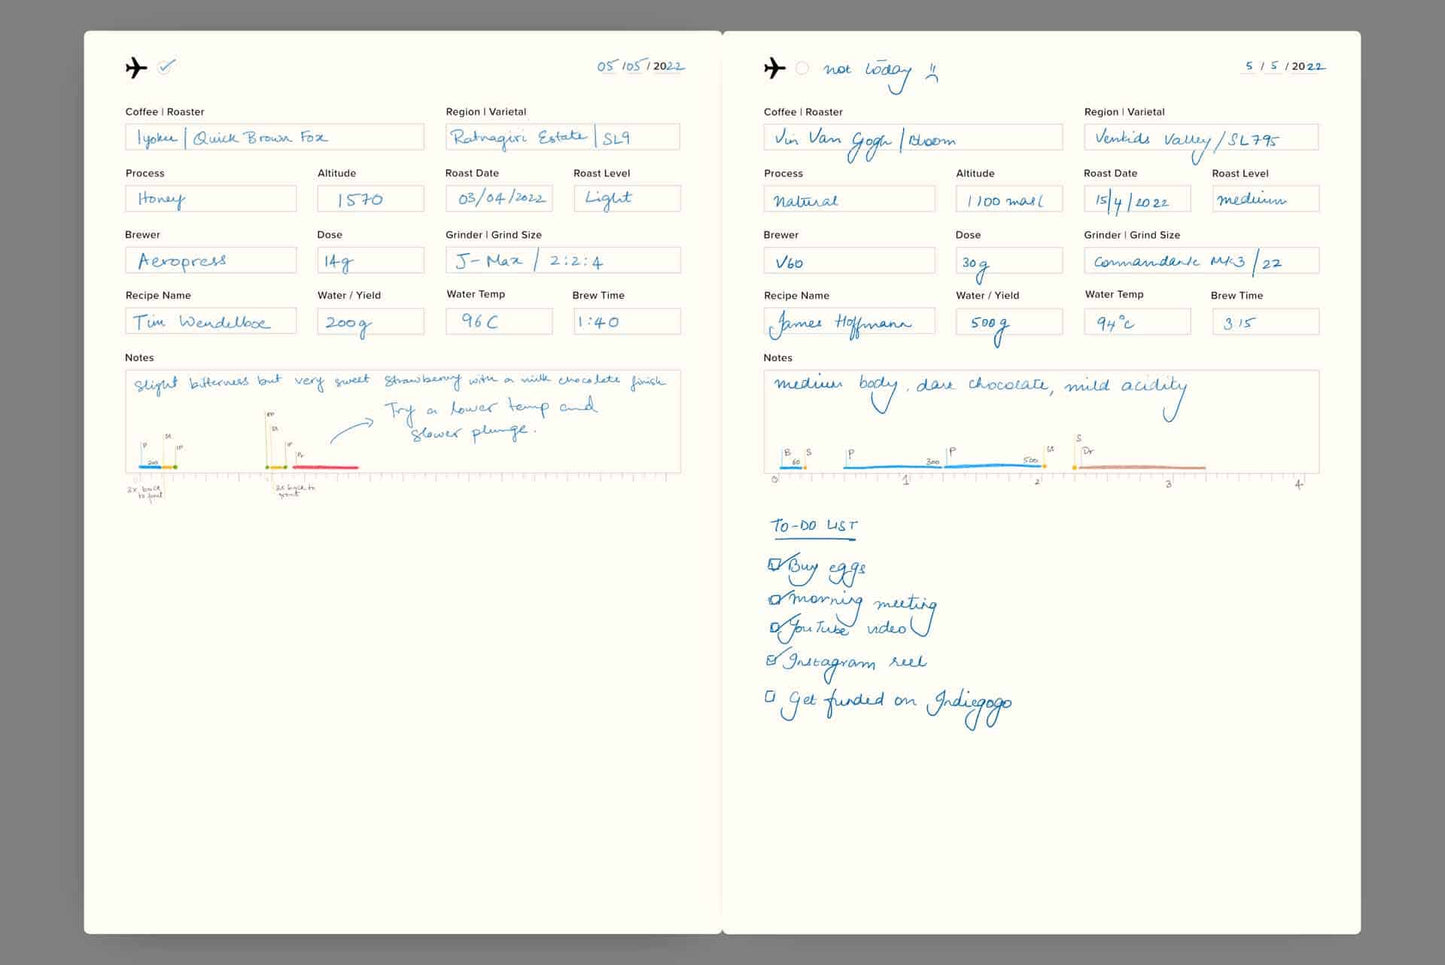 05/05/2022
Coffee | Roaster
Region | Varietal
Iyoku | Quick Brown Fox
Ratnagiri Estate | SL9
Process
Altitude
Roast Date
Roast Level
Honey
1570
03/04/2022
Light
Brewer
Dose
Grinder | Grind Size
Aeropress
14g
J-Max / 2:2:4
Recipe Name
Water / Yield
Water Temp
Brew Time
Tim Wendelboe
200g
96 C
1:40
Notes
Slight bitterness but very sweet strawberry with a milk chocolate finish
Try a lower temp and
slower plunge.
P
St
200
2x back
to front
2x back to
front
not today
5 / 5 / 2022
Coffee | Roaster
Region | Varietal
Vin Van Gogh / Bloom
Valley / SL795
Process
Altitude
Roast Date
Roast Level
Natural
1100 masl
15/4/2022
medium
Brewer
Dose
Grinder | Grind Size
V60
30g
Commandante MK3 / 22
Recipe Name
Water / Yield
Water Temp
Brew Time
James Hoffmann
500g
94°c
3 15
Notes
medium body, dark chocolate, mild acidity
B
60
S
P
300
P
500
St
S
Dr
0 1 2 3 4
TO-DO LIST
Buy eggs
morning meeting
YouTube video
Instagram reel
Get funded on Indiegogo